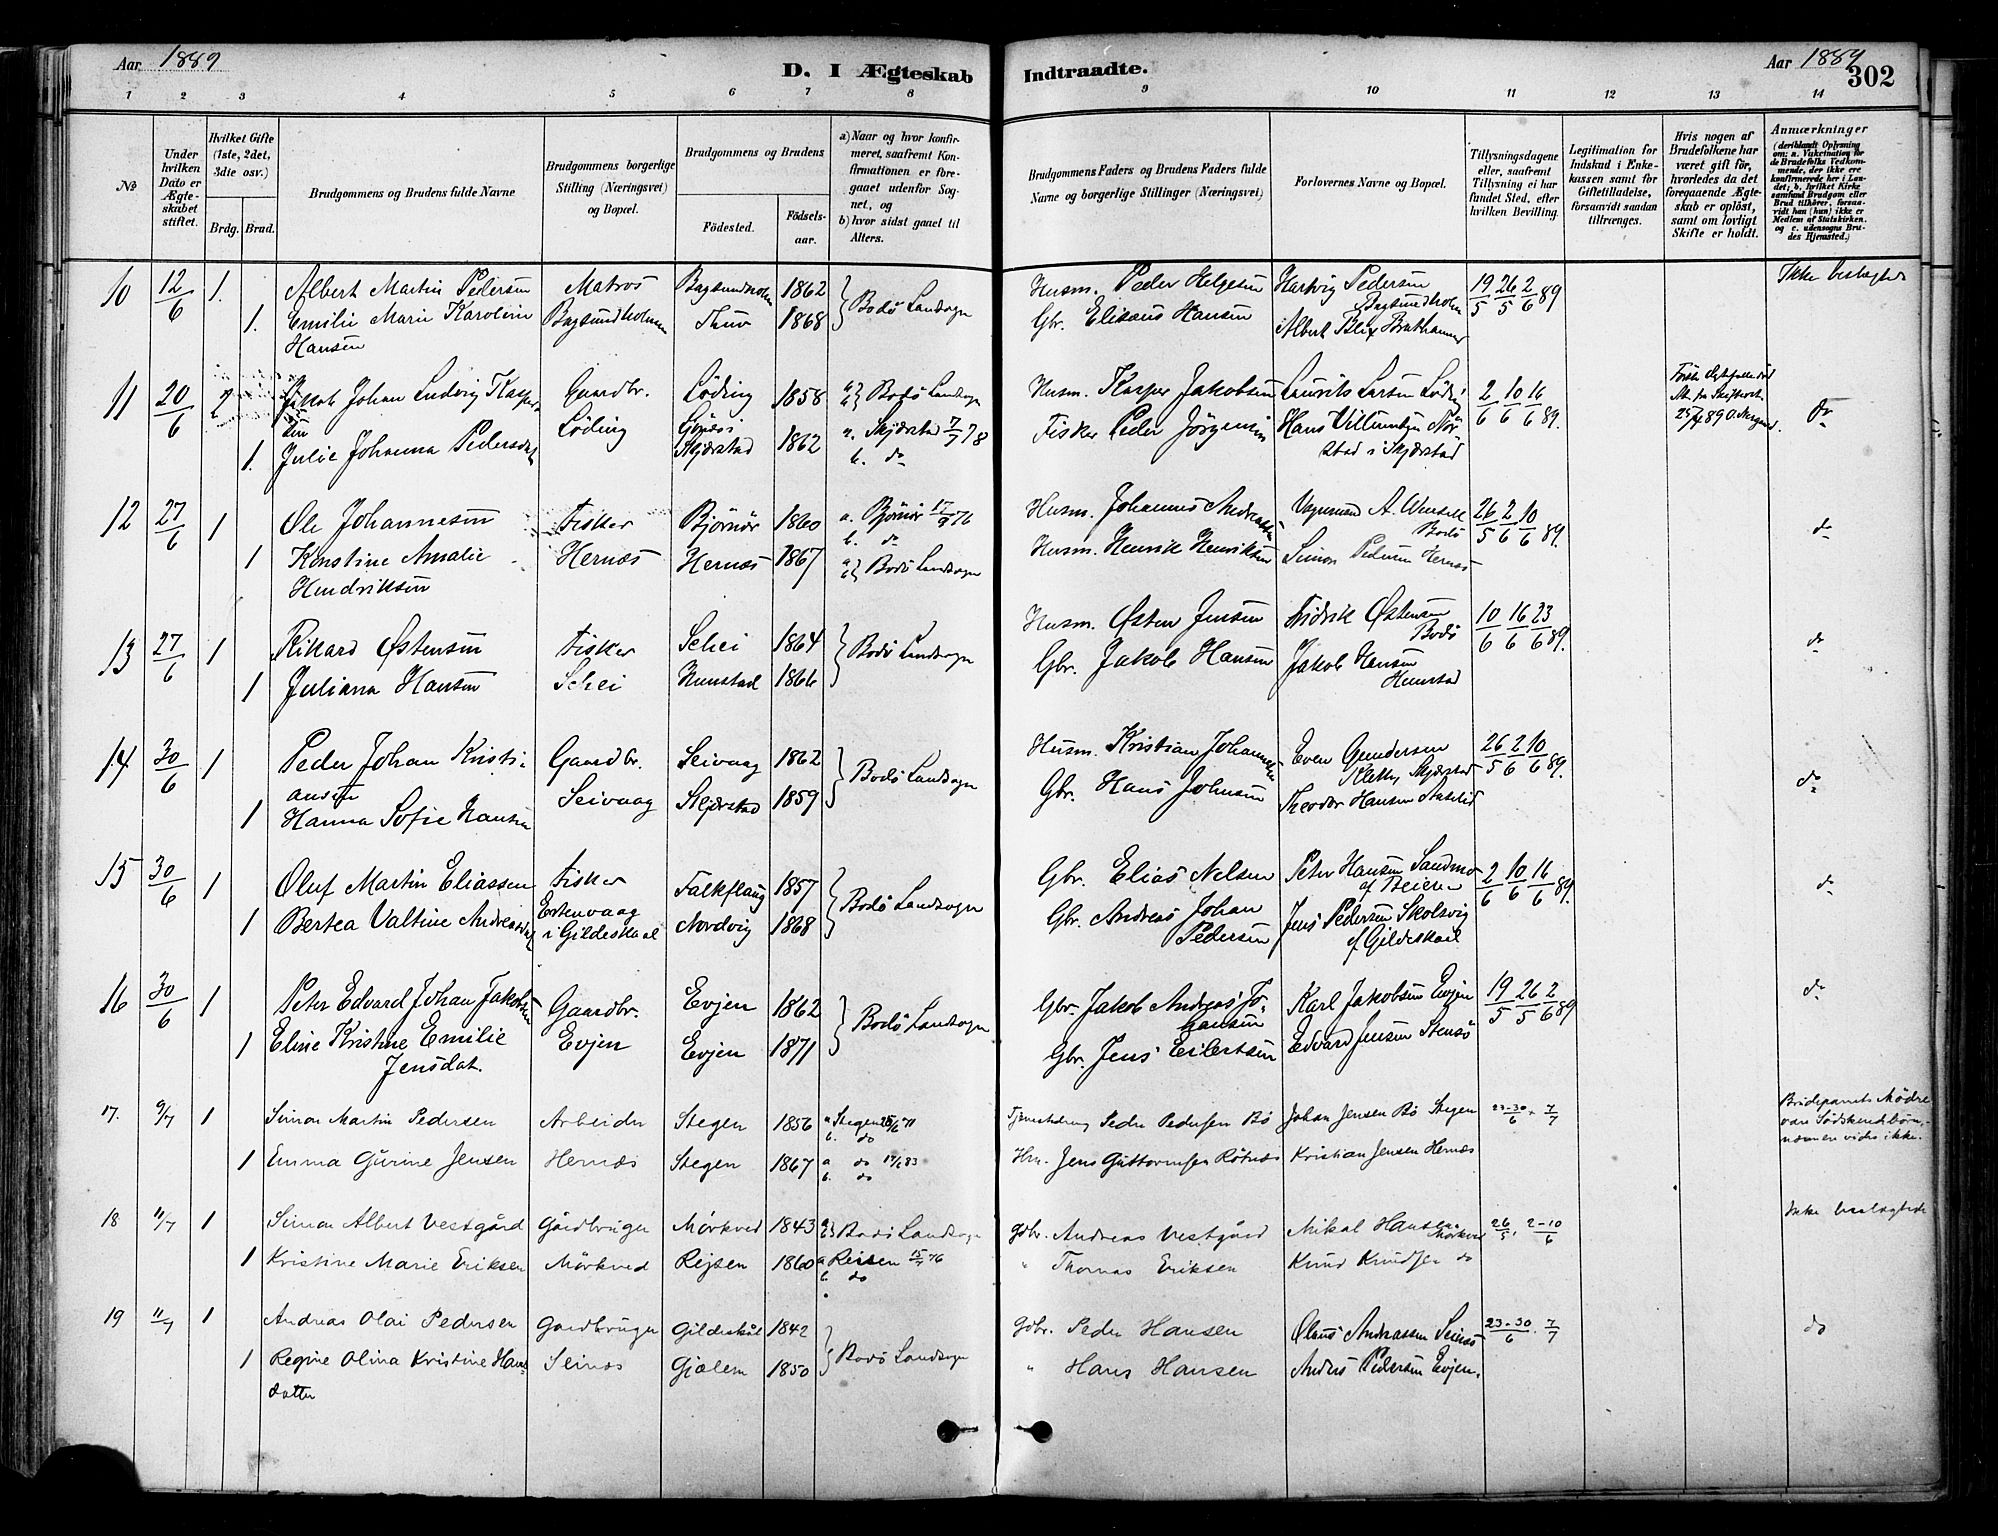 Aar 1889
D. I Ægteskab Indtraadte.
Aar 1889
302
1 2 3 4 5 6 7 8 9 10 11 12 13 14
No
Under hvilken Dato er Ægteskabet stiftet.
Hvilket Gifte (1ste, 2det, 3die osv.)
Brdg. Brud.
Brudgommens og Brudens fulde Navne
Brudgommens borgerlige Stilling (Næringsvei) og Bopæl.
Brudgommens og Brudens
Fødested.
Fødselsaar.
a) Naar og hvor konfirmeret, saafremt Konfirmationen er foregaaet udenfor Sognet, og
b) hvor sidst gaaet til Alters.
Brudgommens Faders og Brudens Faders fulde Navne og borgerlige Stillinger (Næringsvei)
Forlovernes Navne og Bopæl.
Tillysningsdagene eller, saafremt Tillysning ei har fundet Sted, efter hvilken Bevilling.
Legitimation for Indskud i Enkekassen samt for Giftetilladelse, forsaavidt saadan tiltrænges.
Hvis nogen af Brudefolkene har været gift før, hvorledes da det foregaaende Ægteskab er opløst, samt om lovligt Skifte er holdt.
Anmærkninger (deriblandt Oplysning om: a. Vaksination for de Brudefolks Vedkommende, der ikke ere konfirmerede her i Landet; b. hvilket Kirkesamfund Brudgom eller Brud tilhører, forsaavidt han (hun) ikke er Medlem af Statskirken. og c. udensogns Brudes Hjemsted.)
10 12/6 1. Albert Martin Pedersen Matros 1862 } Bodø Landsogn Husm. Peder Helgesen Hartvig Pedersen 19/5 26/5 2/6 89 Ikke beslægtede
1. Emilie Marie Karoline Hansen 1868 Gbr. Elisæus Hansen Albert Blix
11 20/6 2 Jakob Johan Ludvig Kaspersen Gaardbr. Løding 1858 a. b. } Bodø Landsogn Husm. Kasper Jakobsen Laurits Larsen Løding 2/6 10/6 16/6 89. do
1. Julie Johanna Pedersdat Løding Skjærstad 1862 a. Skjærstad 7/7 78 b. do Fisker Peder Jørgensen Hans i Skjærstad
12 27/6 1 Ole Johannesen Fisker Bjørnør 1860 a. Bjørnør 76 b. do Husm. Johannes Andreassen Bodø 26/5 2/6 10/6 89. do
1 Konstine Amalie Hendriksen Hernæs Hernæs 1867 a. b. } Bodø Landsogn Husm. Henrik Henriksen Simon Pedersen Hernæs
13 27/6 1 Rikard Østensen Fisker Schei 1864 } Bodø Landsogn Husm. Østen Jensen Fridrik Østensen Bodø 10/6 16/6 23/6 89. do
1 Juliana Hansen Schei Hunstad 1866 Gbr. Jakob Hansen Jakob Hansen Hunstad
14 30/6 1 Peder Johan Kristiansen Gaardbr. Seivaag 1862 } Bodø Landsogn Husm. Kristian Johannesen Even Gundersen Kletky Skjærstad 26/5 2/6 10/6 89. do
1 Hanna Sofie Hansen Seivaag Skjærstad 1859 Gbr. Hans Johnsen Theodor Hansen
15 30/6 1 Oluf Martin Eliassen Fisker Falkflaug 1857 } Bodø Landsogn Gbr. Elias Nelsen Peter Hansen Sandmo af Beiern 2/6 10/6 16/6 89. do
1 Bertea Valtine Andreasdat i Gildeskaal Nordvig 1868 Gbr. Andreas Johan Pedersen Jens Pedersen Skolsvig af Gildeskaal
16 30/6 1 Peter Edvard Johan Jakobsen Gaardbr. Evjen 1862 } Bodø Landsogn Gbr. Jakob Andreas Johansen Karl Jakobsen Evjen 19/5 26/5 2/6 89 do
1 Elise Kristine Emilie Jensdat. Evjen Evjen 1871 Gbr. Jens Eilertsen Edvard Jensen Stensø
17. 9/7 1 Simon Martin Pedersen Arbeider Stegen 1856 a Stegen 71 b. do Tjenestedreng Peder Pedersen Bø Johan Jensen Bø Stegen 23-30/6 7/7 Brudeparrets Mødre vare Sødskendebørn, nærmere vides ikke.
1 Emma Gurine Jensen Hernæs Stegen 1867 a do 83 b. do Hm. Jens Guttormsen Røtnes Kristian Jensen Hernæs
18 11/7 1 Simon Albert Vestgård Gårdbruger Mørkved 1843 a b } Bodø Landsogn Gdbr. Andreas Vestgård Mikal Hansen Mørkved 26/5, 2-10/6 Ikke beslægtede
1 Kristine Marie Eriksen Mörkved Rejsen 1860 a Reisen 76 b. do " Thomas Eriksen Knud Knudsen do
19 11/7 1 Andreas Olai Pedersen Gårdbruger Gildeskål 1842 } Bodø Landsogn Gdbr. Peder Hansen Olaus Andreassen Seines 23-30/6. 7/7 do
1 Regine Olina Kristine Hansdatter Seines Gjælen 1850 " Hans Hansen Anders Pedersen Evjen.